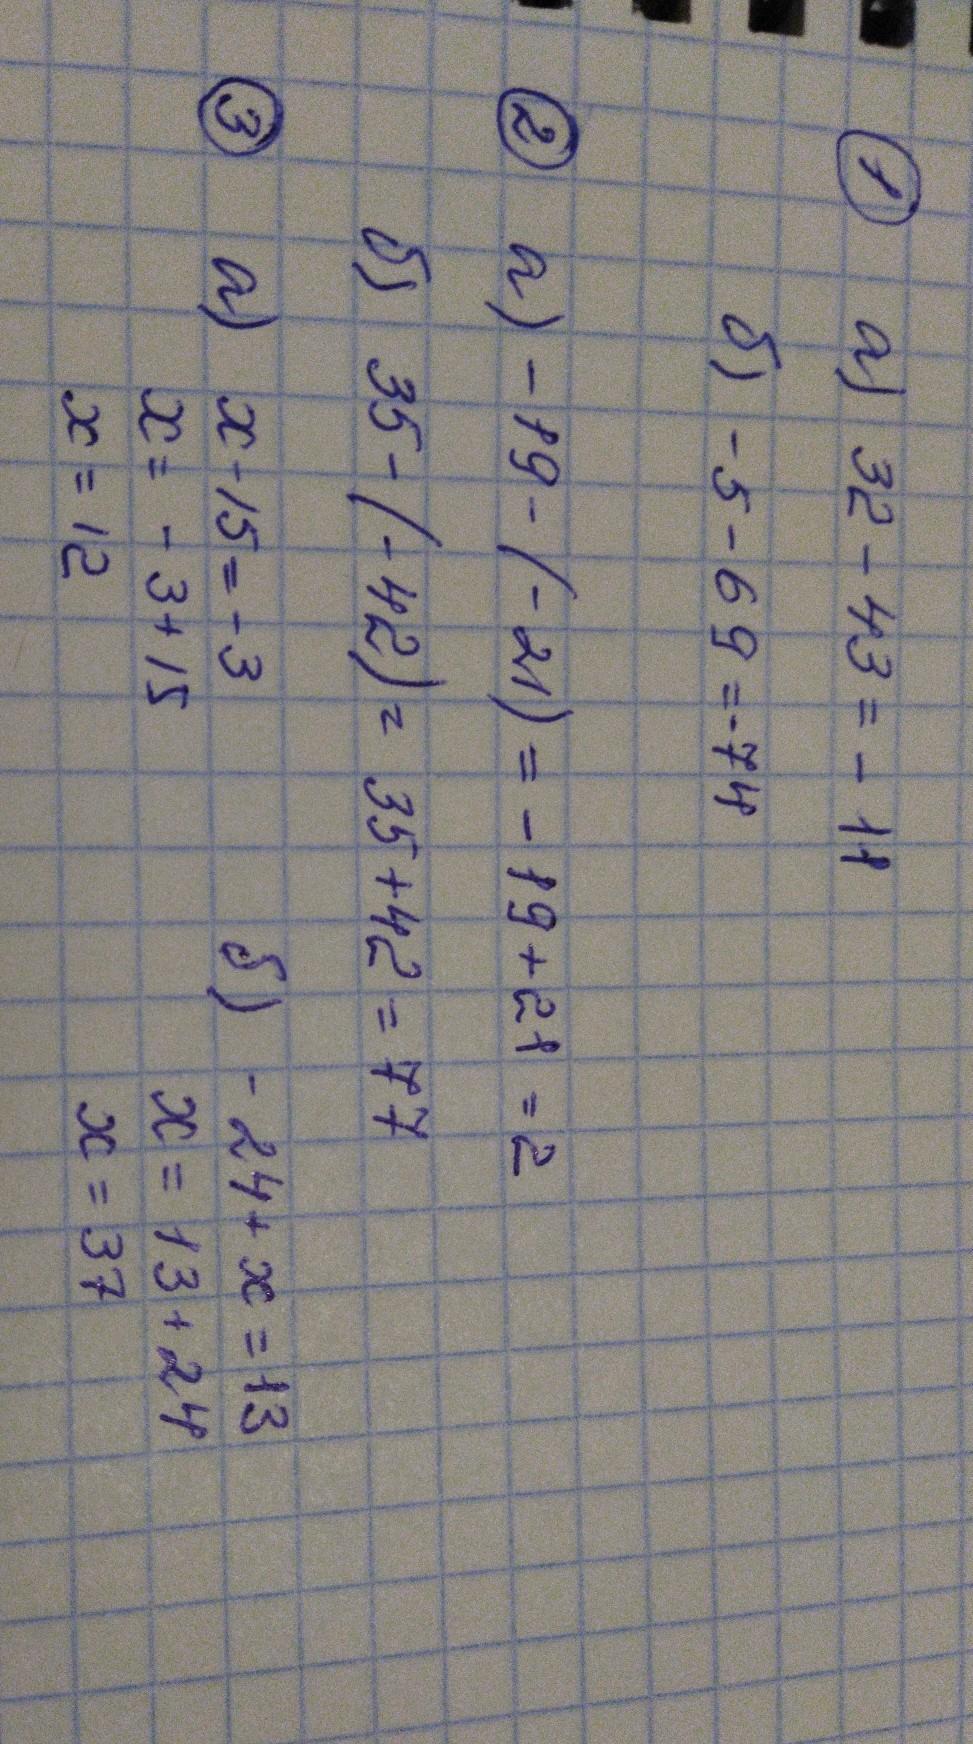 1 а) 32 - 43 = - 11
б) - 5 - 69 = -74
2 а) - 19 - (- 21) = - 19 + 21 = 2
б) 35 - (- 42) = 35 + 42 = 77
3 а) x - 15 = - 3 б) - 24 + x = 13
x = - 3 + 15 x = 13 + 24
x = 12 x = 37